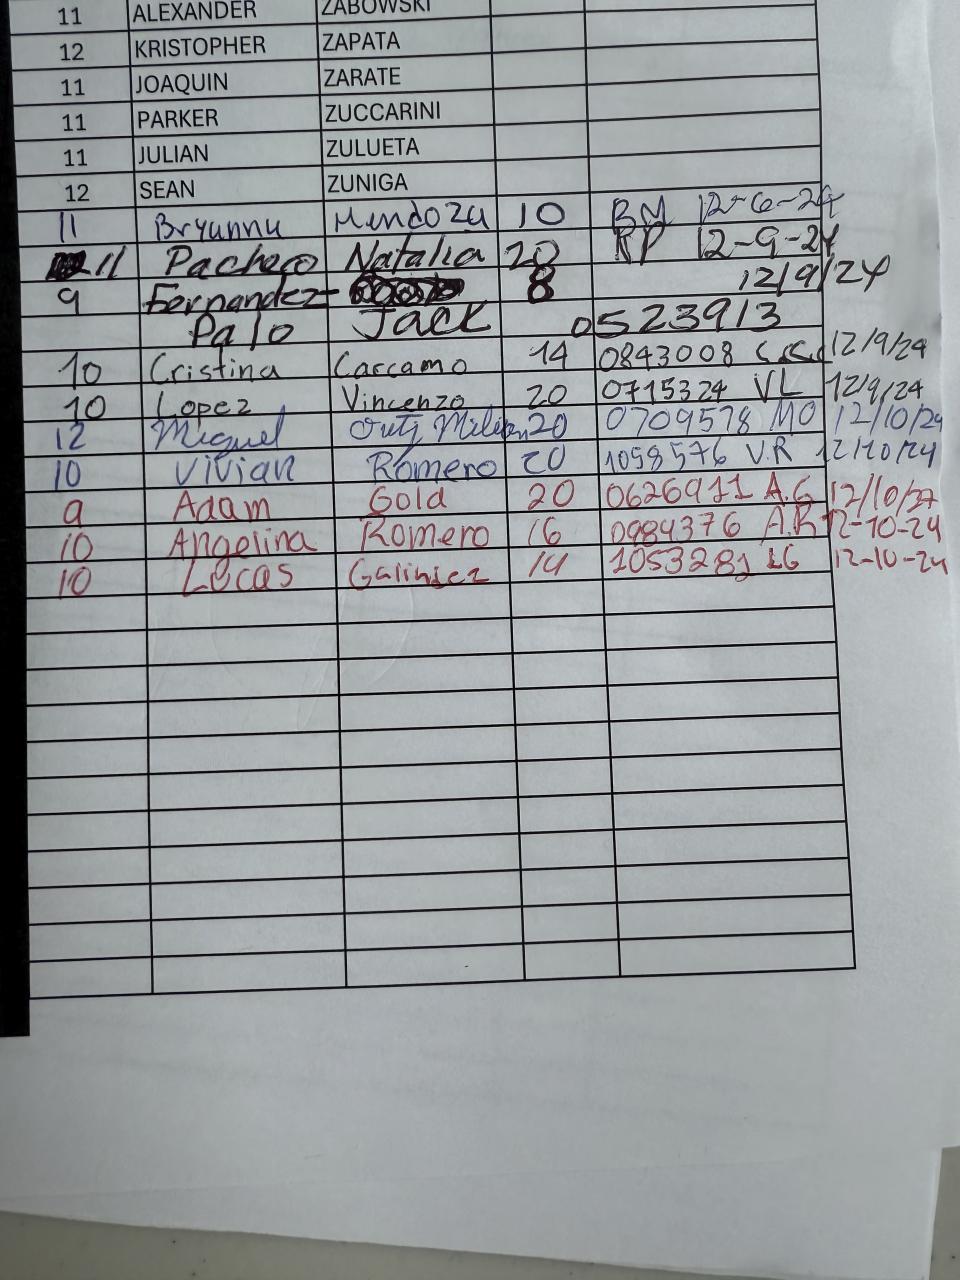 11 ALEXANDER ZABOWSKI
12 KRISTOPHER ZAPATA
11 JOAQUIN ZARATE
11 PARKER ZUCCARINI
11 JULIAN ZULUETA
12 SEAN ZUNIGA
11 Bryanna Mendoza 10 BM 12-6-24
11 Pacheco Natalia 20 12-9-24
9 Fernandez- 8 12/9/24
Palo Jack 0523913
10 Cristina Carcamo 14 0843008 12/9/24
10 Lopez Vincenzo 20 0715324 VL 12/9/24
12 Miguel Ortiz 20 0709578 MO 12/10/24
10 Vivian Romero 20 1058576 V.R 12/10/24
9 Adam Gold 20 0626911 A.G 12/10/24
10 Angelina Romero 16 0984376 A.R 12-10-24
10 Lucas Galindez 14 1053281 LG 12-10-24